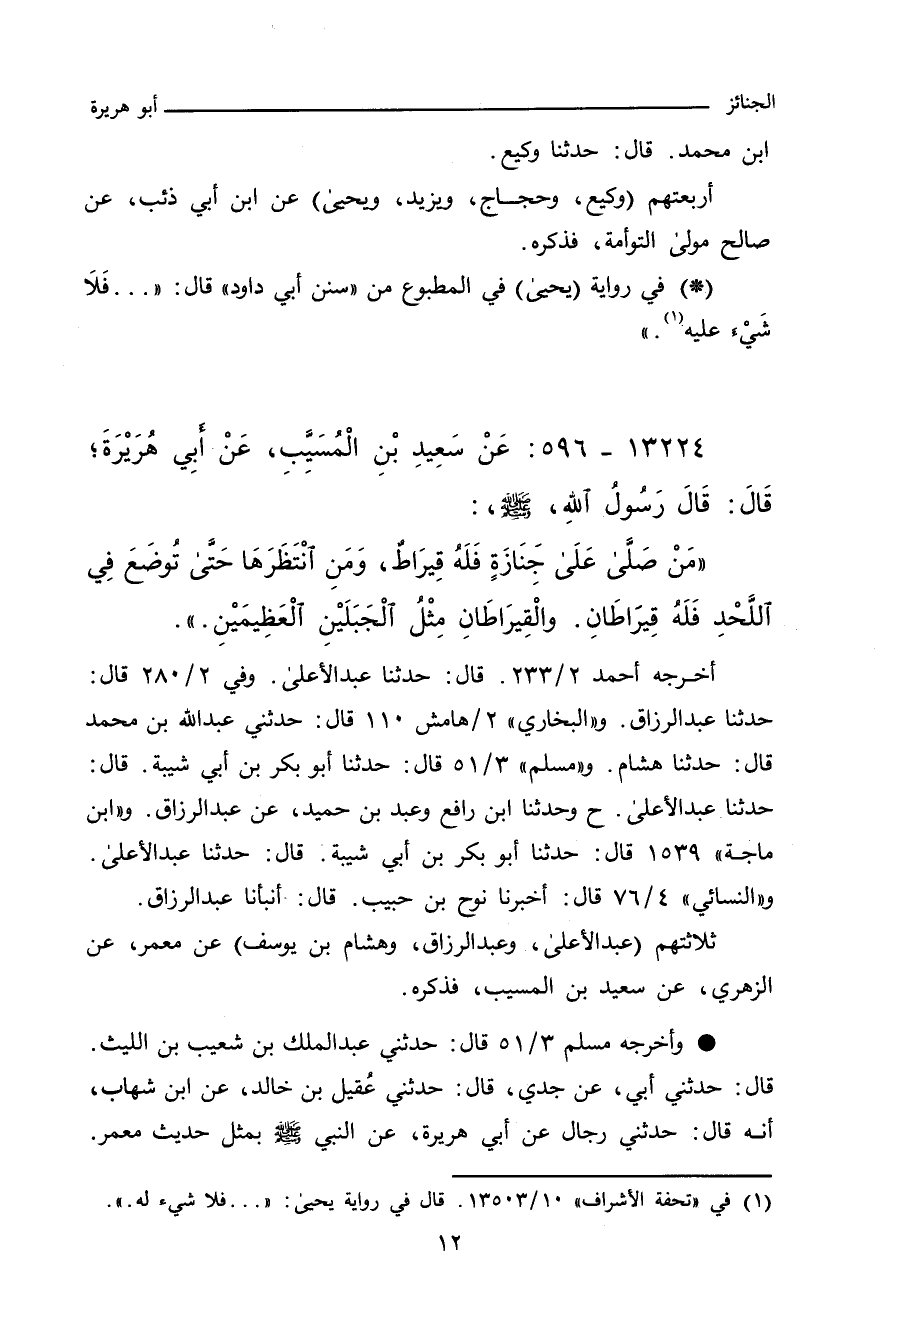 الجنائز ــــــــــــــــــــــــــــــــــــــــ أبو هريرة
ابن محمد. قال: حدثنا وكيع.
أربعتهم (وكيع، وحجـاج، ويزيد، ويحيىٰ) عن ابن أبي ذئب، عن
صالح مولىٰ التوأمة، فذكره.
(*) في رواية (يحيىٰ) في المطبوع من «سنن أبي داود» قال: «...فَلَا
شَيْء عليه(١).»
١٣٢٢٤ - ٥٩٦: عَنْ سَعِيدِ بْنِ الْمُسَيَّبِ، عَنْ أَبِي هُرَيْرَةَ؛
قَالَ: قَالَ رَسُولُ ٱللهِ، ﷺ،:
«مَنْ صَلَّىٰ عَلَىٰ جَنَازَةٍ فَلَهُ قِيرَاطٌ، وَمَنِ ٱنْتَظَرَهَا حَتَّىٰ تُوضَعَ فِي
ٱللَّحْدِ فَلَهُ قِيرَاطَانِ. والْقِيرَاطَانِ مِثْلُ ٱلْجَبَلَيْنِ ٱلْعَظِيمَيْنِ.».
أخـرجه أحمد ٢٣٣/٢. قال: حدثنا عبدالأعلىٰ. وفي ٢٨٠/٢ قال:
حدثنا عبدالرزاق. و«البخاري» ٢/هامش ١١٠ قال: حدثني عبدالله بن محمد
قال: حدثنا هشام. و«مسلم» ٥١/٣ قال: حدثنا أبو بكر بن أبي شيبة. قال:
حدثنا عبدالأعلىٰ. ح وحدثنا ابن رافع وعبد بن حميد، عن عبدالرزاق. و«ابن
ماجـة» ١٥٣٩ قال: حدثنا أبو بكر بن أبي شيبة. قال: حدثنا عبدالأعلىٰ.
و«النسائي» ٧٦/٤ قال: أخبرنا نوح بن حبيب. قال: أنبأنا عبدالرزاق.
ثلاثتهم (عبدالأعلىٰ، وعبدالرزاق، وهشام بن يوسف) عن معمر، عن
الزهري، عن سعيد بن المسيب، فذكره.
● وأخرجه مسلم ٥١/٣ قال: حدثني عبدالملك بن شعيب بن الليث.
قال: حدثني أبي، عن جدي، قال: حدثني عُقيل بن خالد، عن ابن شهاب،
أنـه قال: حدثني رجال عن أبي هريرة، عن النبي ﷺ بمثل حديث معمر.
(١) في «تحفة الأشراف» ١٣٥٠٣/١٠. قال في رواية يحيىٰ: «...فلا شيء له.».
١٢